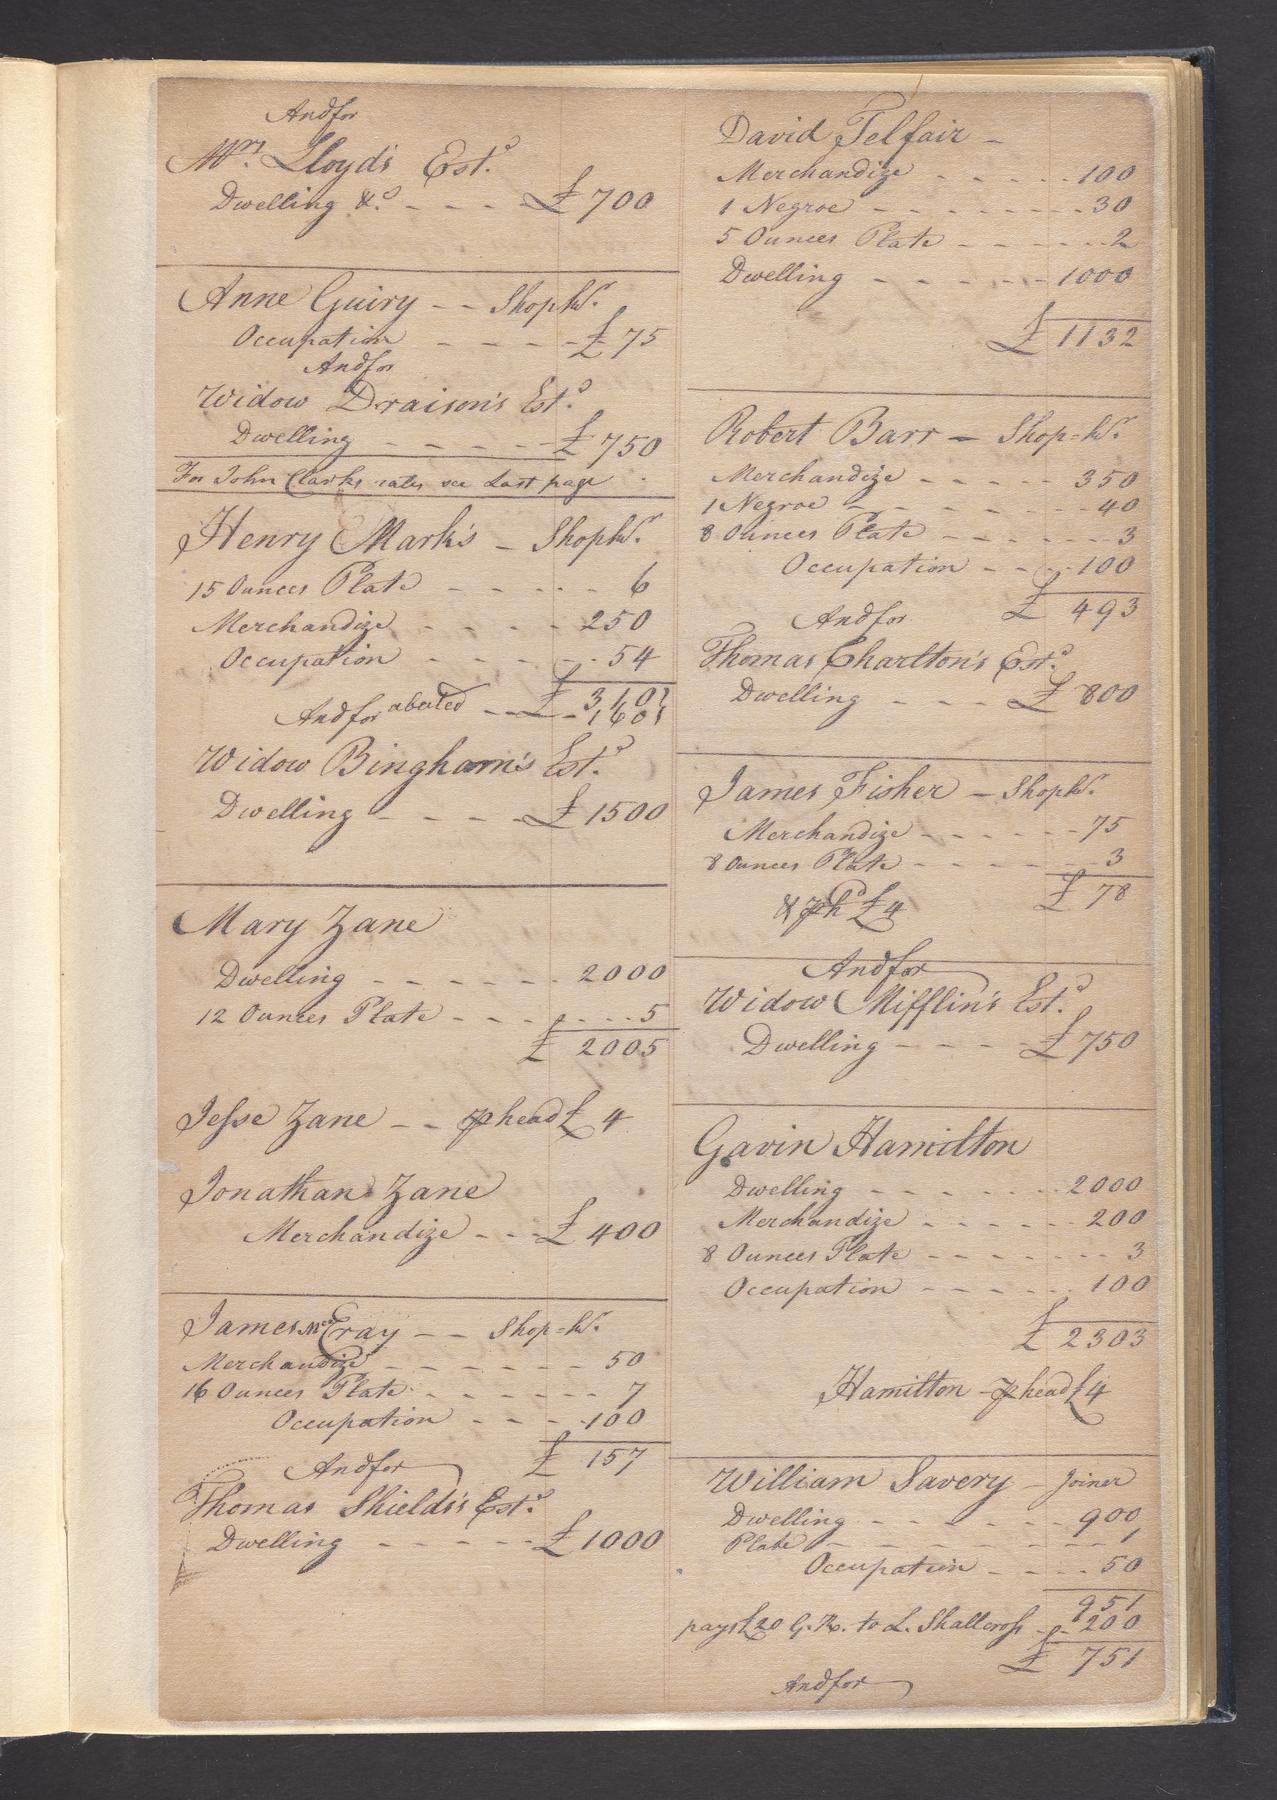 And for
Mrs. Lloyd's Estd.
Dwelling &c. - - - - £700
Anne Guiry - - Shopkr.
Occupation - - - - £75
And for
Widow Draison's Estd.
Dwelling - - - - - £750
For John Clarks rates see Last page
Henry Mark's - Shopkr.
15 Ounces Plate - - - - - 6
Merchandize - - - - 250
Occupation - - - - - 54
£ 310
And for abated - - - 160
Widow Bingham's Estd.
Dwelling - - - - £1500
Mary Zane
Dwelling - - - - - - 2000
12 Ounces Plate - - - - - - 5
£ 2005
Jesse Zane - - ⅌ head £ 4
Jonathan Zane
Merchandize - - - £ 400
James McCray - - Shop=kr.
Merchandize - - - - - - 50
16 Ounces Plate - - - - - - 7
Occupation - - - - 100
£ 157
And for
Thomas Shields's Estd.
Dwelling - - - - - £1000
David Telfair -
Merchandize - - - - - 100
1 Negroe - - - - - - - 30
5 Ounces Plate - - - - - - 2
Dwelling - - - - - 1000
£ 1132
Robert Barr - Shop=kr.
Merchandize - - - - - 350
1 Negroe - - - - - - - 40
8 Ounces Plate - - - - - - 3
Occupation - - - - 100
£ 493
And for
Thomas Charlton's Estd.
Dwelling - - - £ 800
James Fisher - Shopkr.
Merchandize - - - - - - 75
8 Ounces Plate - - - - - - 3
£ 78
& ⅌ hd £4
And for
Widow Mifflin's Estd.
Dwelling - - - - £750
Gavin Hamilton
Dwelling - - - - - - 2000
Merchandize - - - - - 200
8 Ounces Plate - - - - - - 3
Occupation - - - - - 100
£ 2303
Hamilton - ⅌ head £4
William Savery - Joiner
Dwelling - - - - - - 900
Plate - - - - - - - - 1
Occupation - - - - 50
951
pays £20 G. R. to L. Shallcross - - 200
£ 751
And for